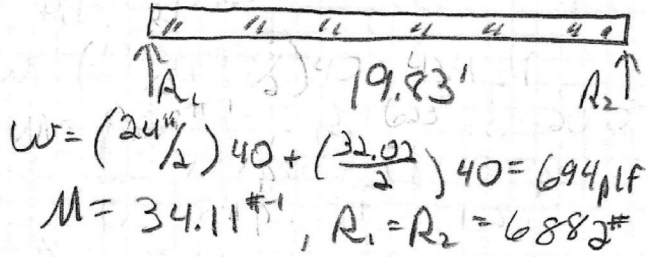 R₁ 19.83' R₂
W = (24"/2) 40 + (32.02/2) 40 = 694 plf
M = 34.11 #-1, R₁ = R₂ = 6882#